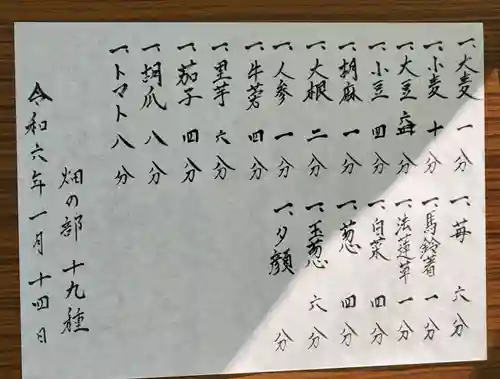 一、大麦 一分
一、小麦 十分
一、大豆 分
一、小豆 四分
一、胡麻 一分
一、大根 二分
一、人参 一分
一、牛蒡 四分
一、里芋 六分
一、茄子 四分
一、胡瓜 八分
一、トマト 八分
一、苺 六分
一、馬鈴薯 一分
一、法蓮草 一分
一、白菜 四分
一、葱 四分
一、玉葱 六分
一、夕顔 分
畑の部 十九種
令和六年一月十四日